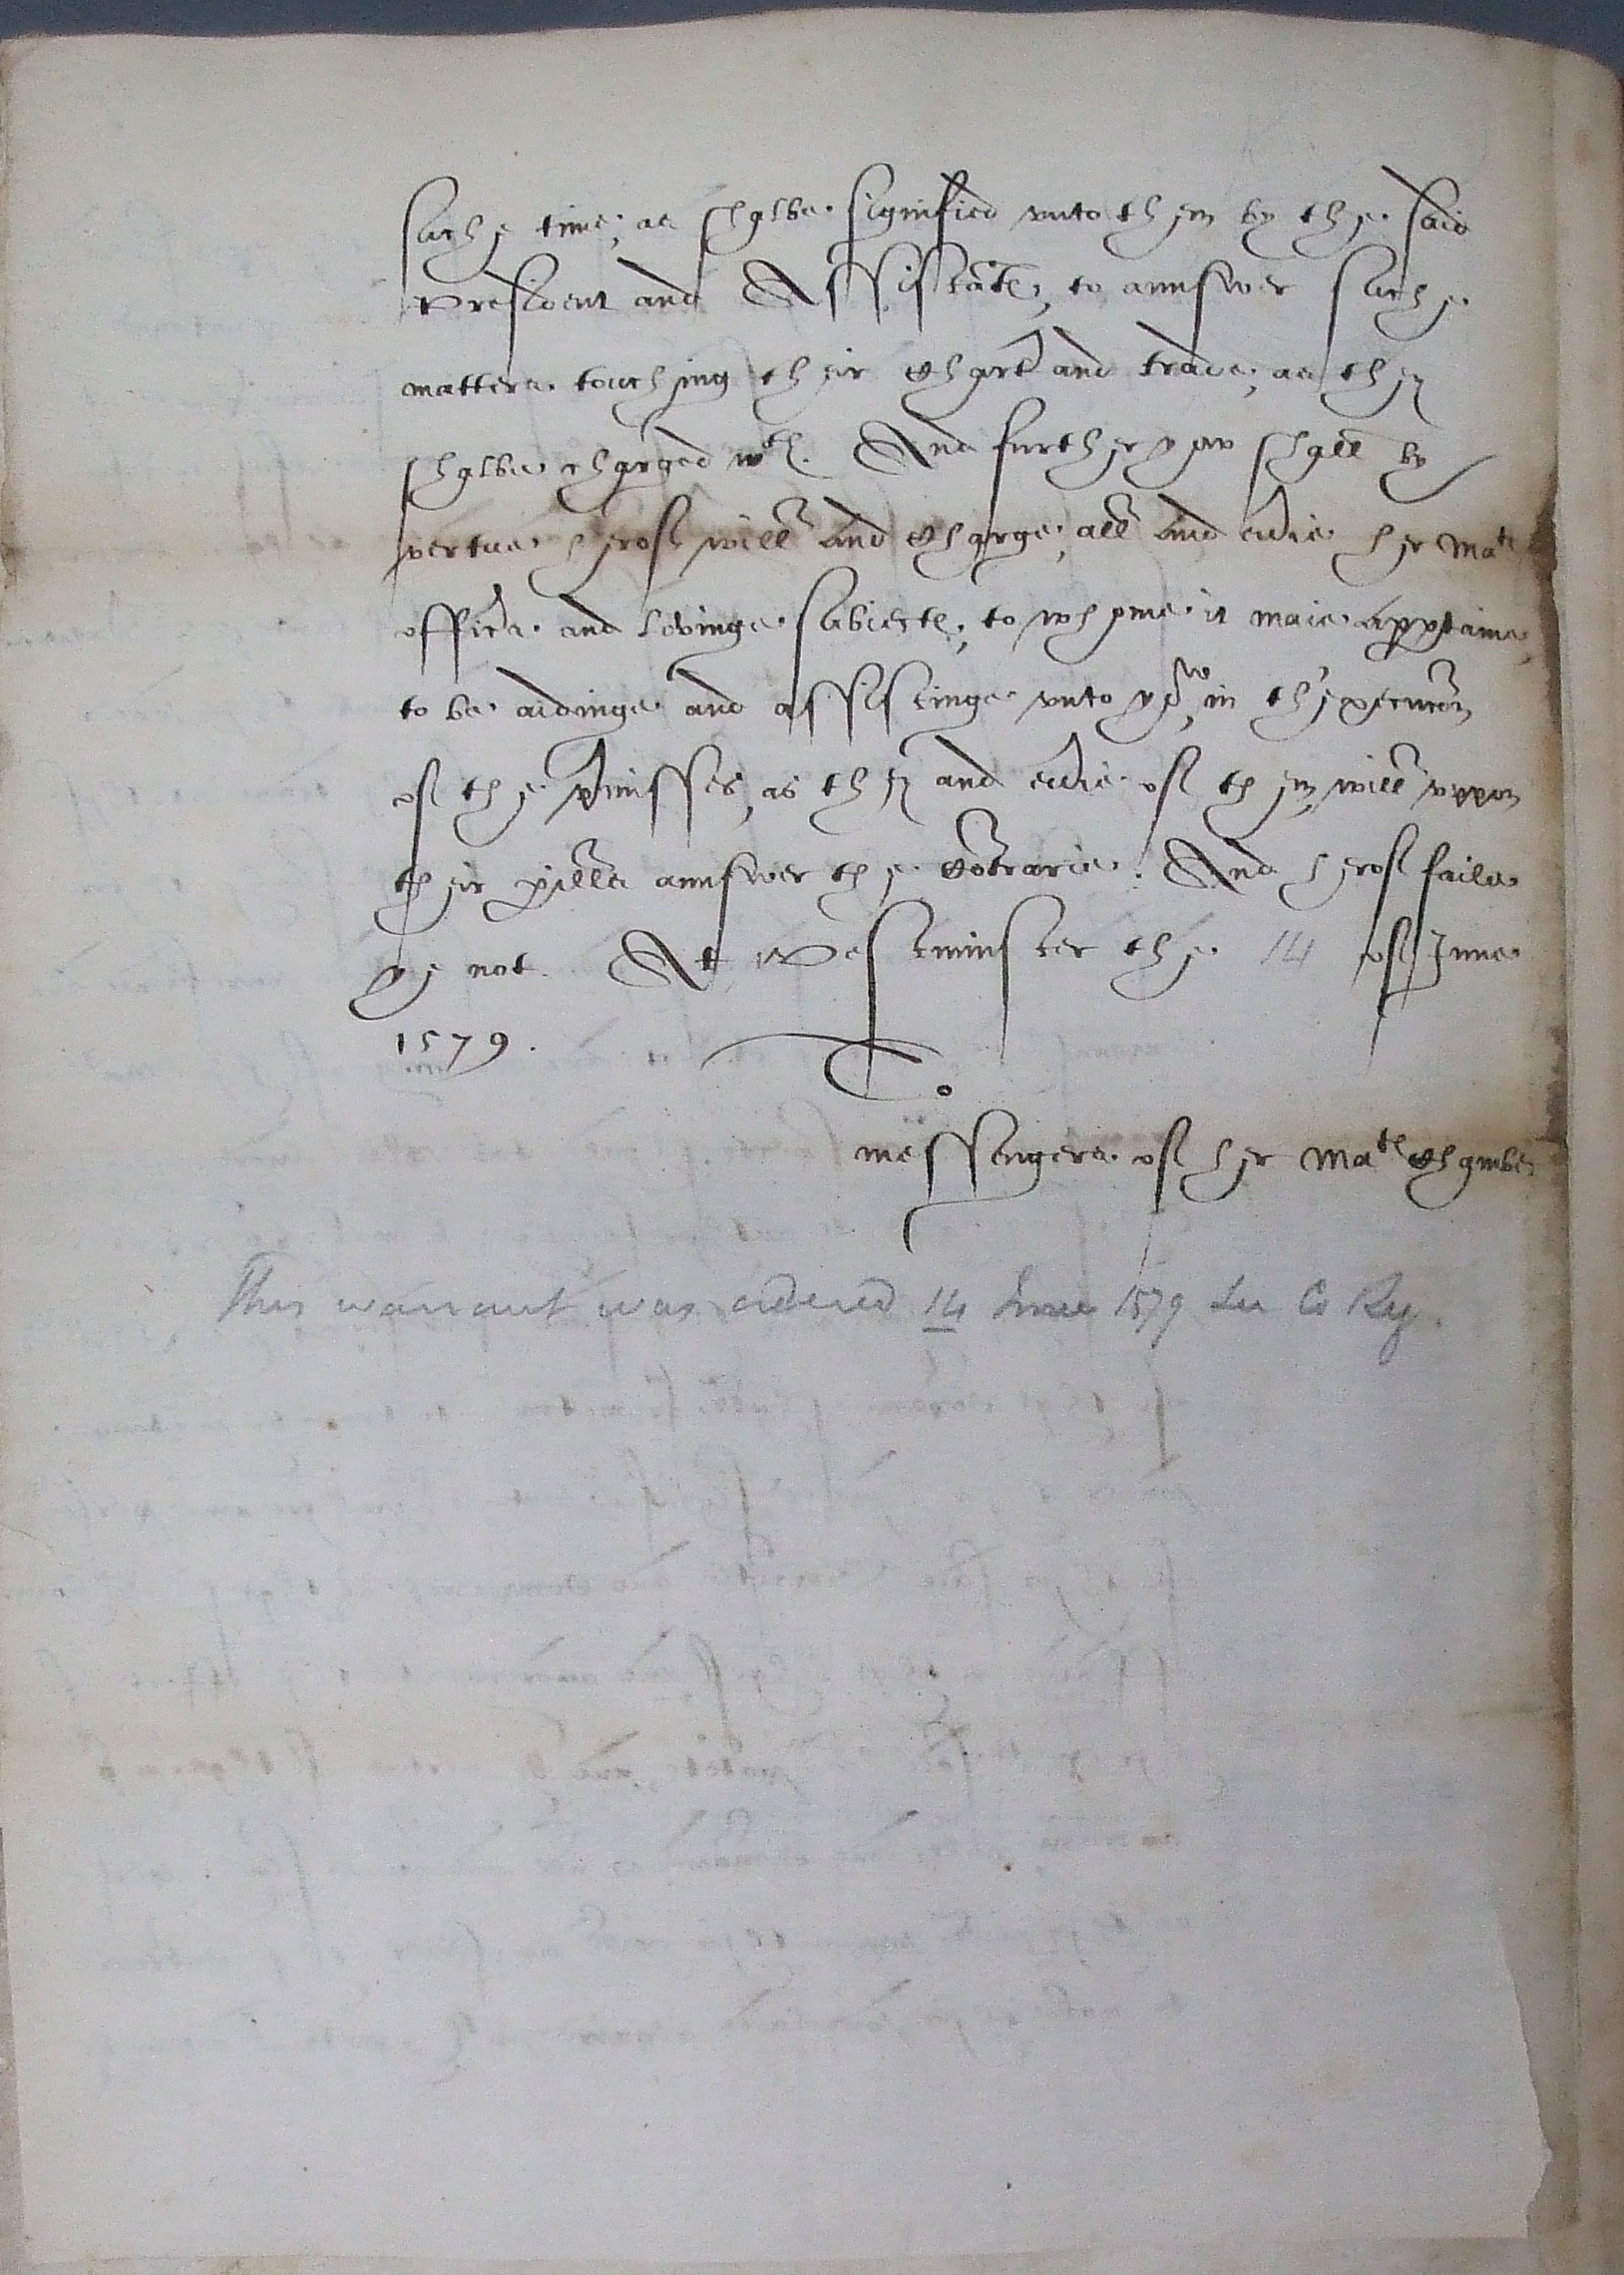 suche time, as shalbe signified vnto them by the said
President and Assistãts, to aunswer suche
matters touching their Chart͛ and trade, as they
shalbe charged wth. And further yow shall by
vertue hereof will and Charge, all and eũie her Mats
offic͛s and lovinge subiects, to whome it maie apptaine,
to be aidinge and assistinge vnto yow, in th'execucõn
of the pmisses, as they and eũie of them, will vppon
their pills aunswer the Cõtrarie. And hereof faile
ye not. At Westminster the 14 of June
1579.
To
messengers of her Mats Chamber
This warrant was ordered 14 June 1579 See Co Reg.